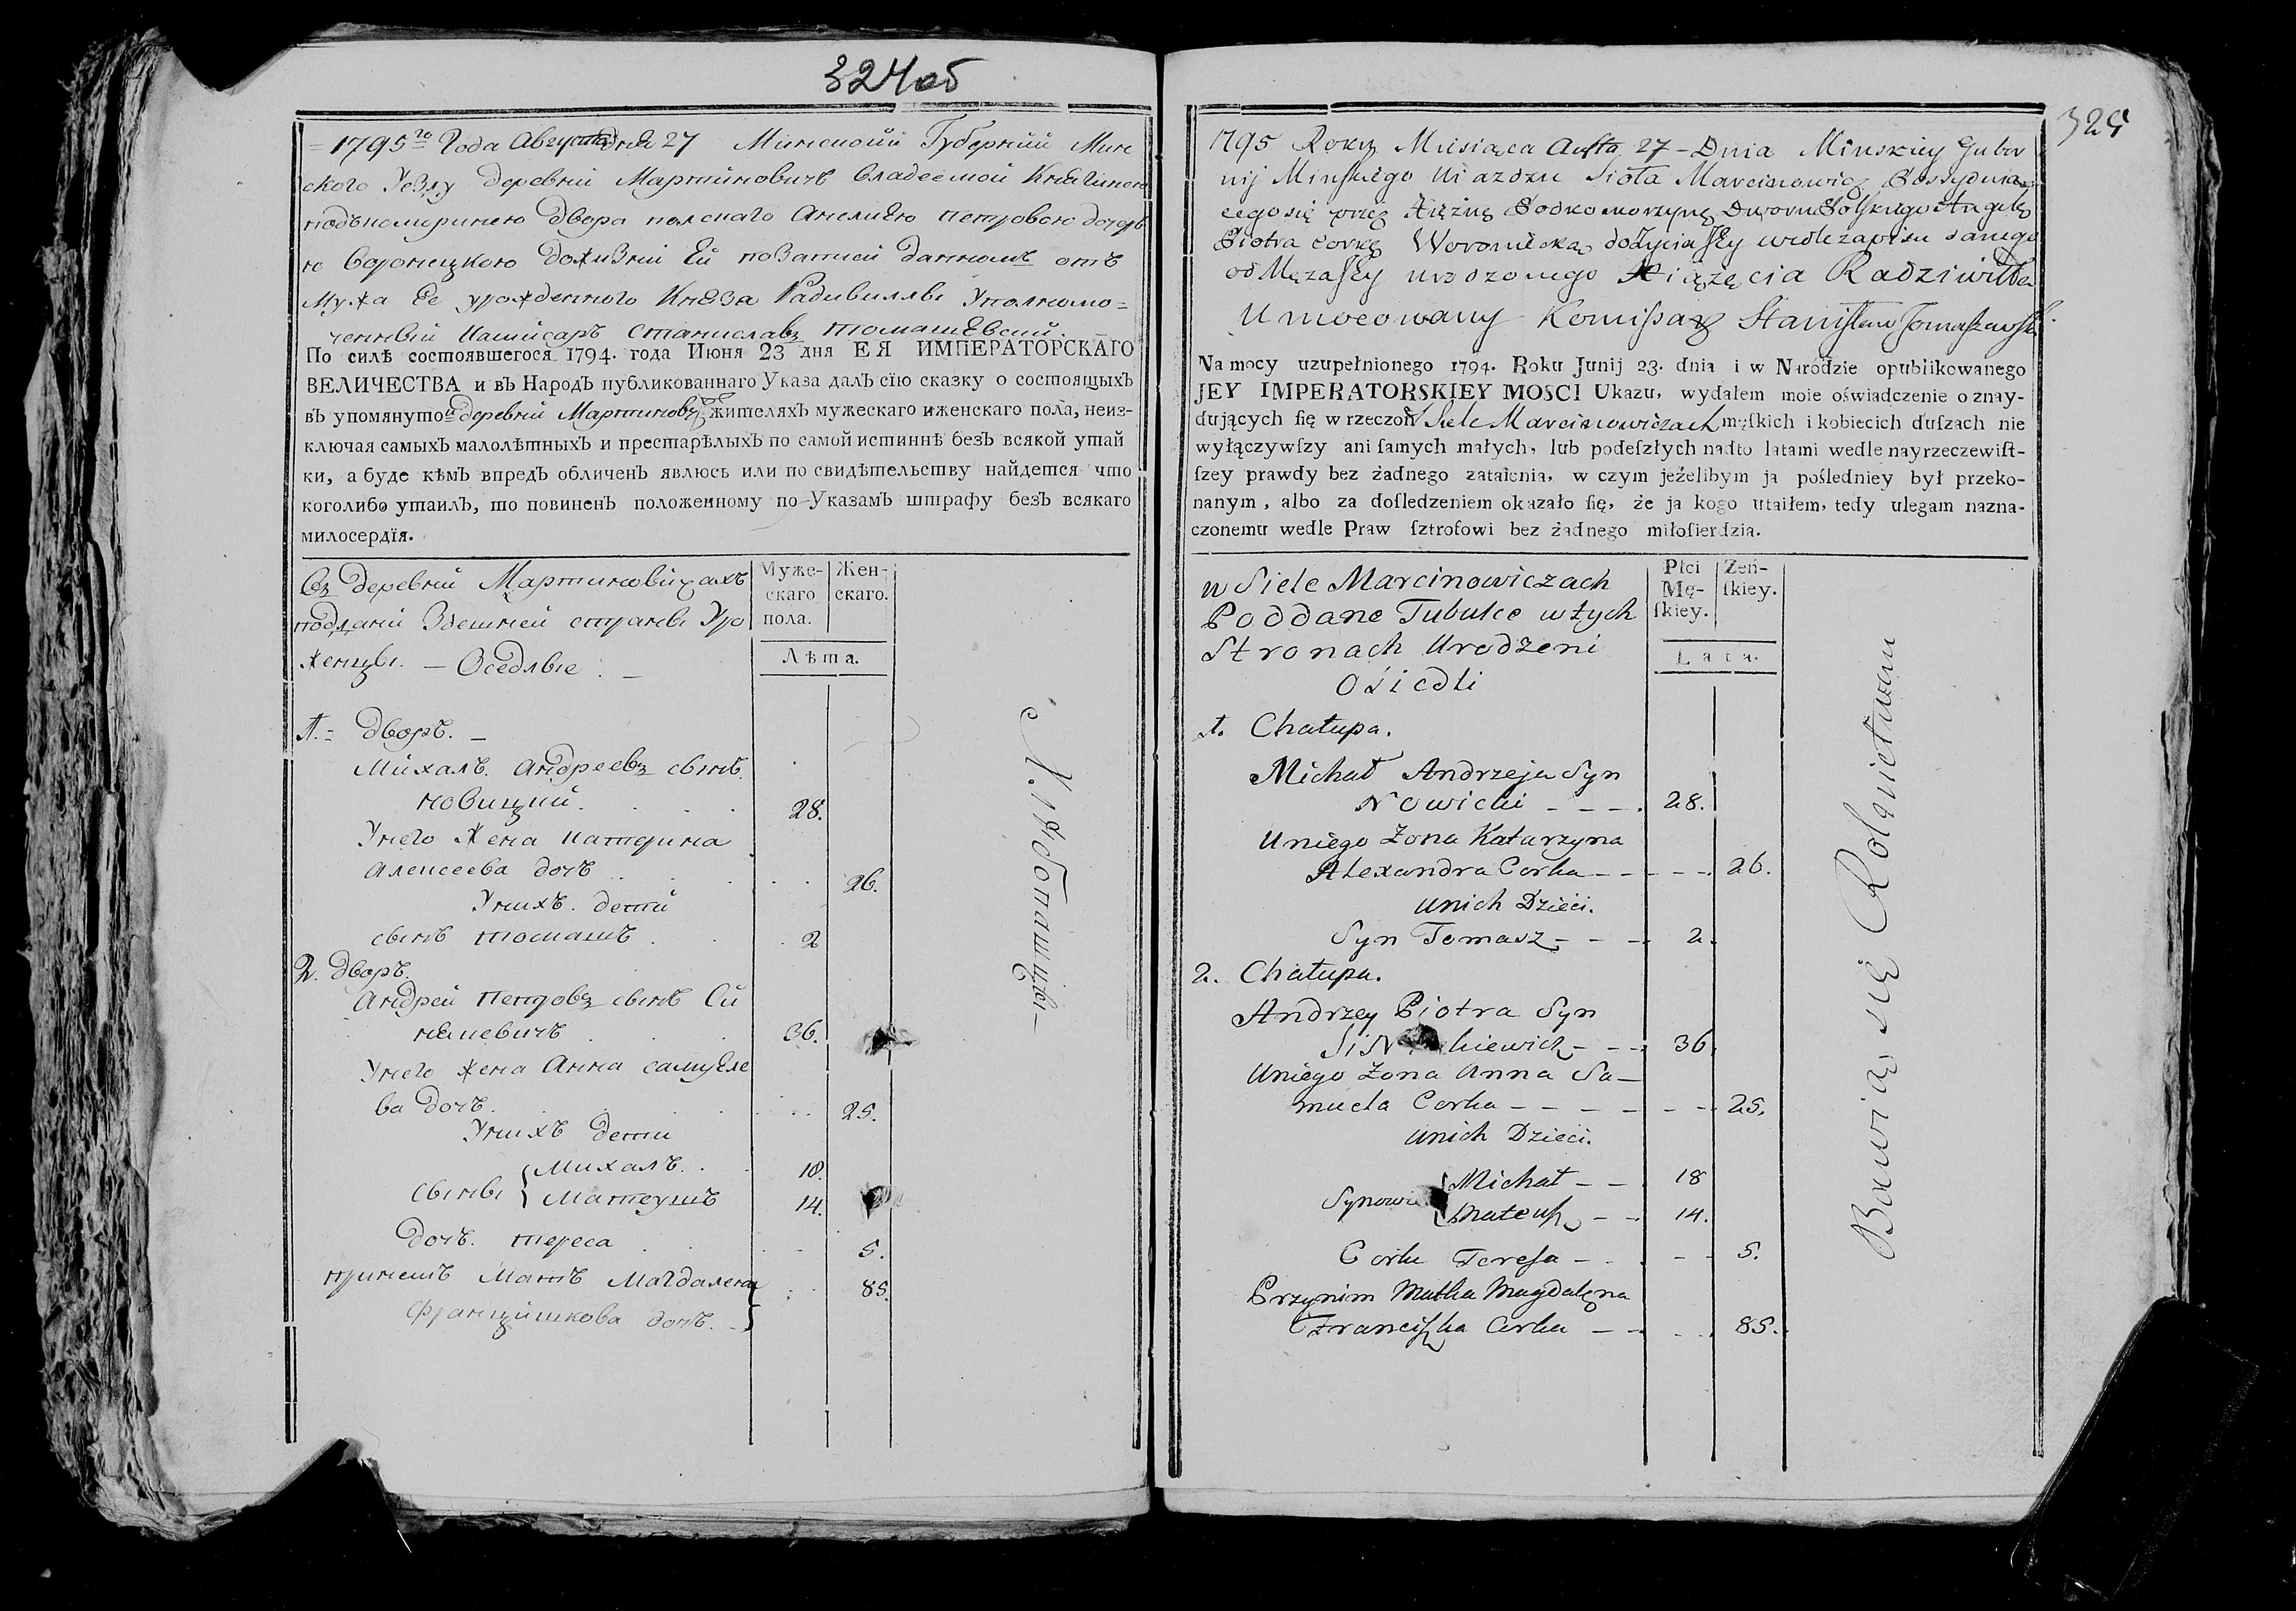 324об
1795го Года Августа дня 27 Минской Губернии Мин
ского Уезду деревни Мартиновичъ владеемой Княгинею
подъкоморинею двора полскаго Анелиею Петровою дочерь
ю Воронецкого доживнъ Ей по записи данномъ отъ
Мужа Ее урожденного Князя Радивиллы Уполномо=
ченный Комисаръ Станиславъ Томашевский.
По силѣ состоявшегося 1794. года Июня 23 дня ЕЯ ИМПЕРАТОРСКАГО
ВЕЛИЧЕСТВА и въ Народъ публикованнаго Указа далъ сїю сказку о состоящыхъ
въ упомянутой деревни Мартиновичахъ жителяхъ мужескаго иженскаго пола, неиз-
ключая самыхъ малолѣтныхъ и престарѣлыхъ по самой истиннѣ безъ всякой утай
ки, а буде кѣмъ впредъ обличенъ явлюсь или по свидѣтельству найдется что
коголибо утаилъ, то повиненъ положенному по Указамъ штрафу безъ всякаго
милосердїя.
Въ деревни Мартиновичахъ
поддании Здешней страны Уро
женцы. — Оседлые. —
Муже-
скаго
пола.
Жен-
скаго.
Лѣта.
1.= дворъ. —
Михалъ Андреевъ сынъ
Новицкий. 28.
У него жена Катерина
Алексеева дочь 26.
У нихъ дети
сынъ Томашъ 2
2. дворъ.
Андрей Петровъ сынъ Си
нкевичъ 36.
У него жена Анна Самуеле
ва дочь. 25.
У нихъ дети
сыны { Михалъ. 18.
Матеушъ 14.
дочь Тереса 5.
При немъ мать Магдалена
Францишкова дочь. 85.
Хлебопашцы —
325
1795 Roku Miesiąca Aufta 27 - Dnia Minskiey Guber
nij Minskiego Uiazdzu Sioła Marcinowicz Possydnia
cego się przez Xiężnę Podkomorzynę Dworu Polskiego Angelę
Piotra Corkę Woroniecką do życia Jey wedle zapisu danego
od Męża Jey urodzonego Xiążęcia Radziwiłła
Umocowany Komissarz Stanisław Tomaszewski.
Na mocy uzupełnionego 1794. Roku Junij 23. dnia i w Narodzie opublikowanego
JEY IMPERATORSKIEY MOSCI Ukazu, wydałem moie oświadczenie o znay-
dujących ſię w rzeczoney Siele Marcinowiczach męſkich i kobiecich duſzach nie
wyłączywſzy ani ſamych małych, lub podeſzłych nadto latami wedle nayrzeczewiſt-
ſzey prawdy bez żadnego zataienia, w czym jeżelibym ja pośledniey był przeko-
nanym, albo za dośledzeniem okazało ſię, że ja kogo utaiłem, tedy ulegam nazna-
czonemu wedle Praw ſztrofowi bez żadnego miłoſierdzia.
w Siele Marcinowiczach
Poddane Tubulce w tych
Stronach Urodzeni
Osiedli
Płci
Mę-
ſkiey.
Zeń-
ſkiey.
Lata.
1. Chałupa.
Michał Andrzeja Syn
Nowicki - - - 28.
Uniego Zona Katarzyna
Alexandra Corka - - - - - 26.
unich Dzieci.
Syn Tomasz - - - 2.
2. Chałupa.
Andrzey Piotra Syn
Sin kiewicz - - - 36.
Uniego Zona Anna Sa-
muela Corka - - - - - - 25.
unich Dzieci.
Synowie { Michał - - 18
Mateusz - - 14.
Corka Teresa - - - - 5.
Przynim Matka Magdalena
Franciszka Corka - - - - 85.
Bawią się Rolnictwem